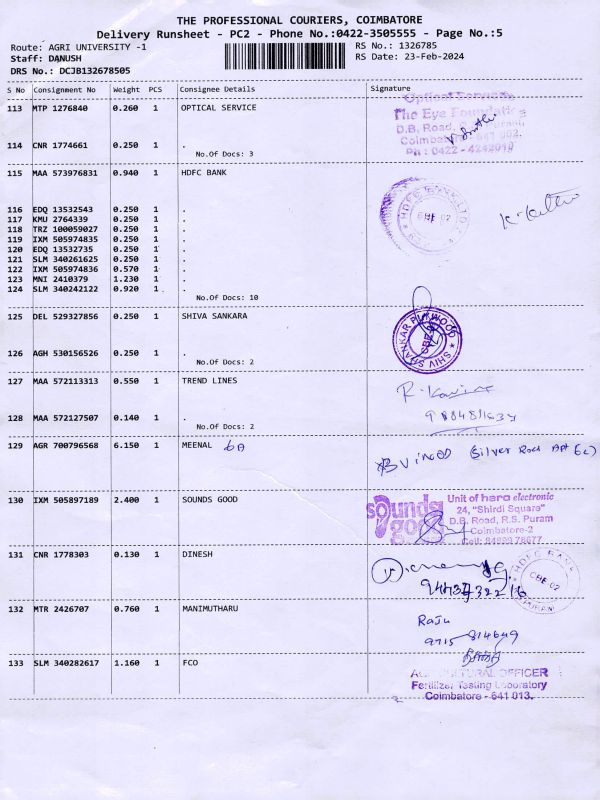 THE PROFESSIONAL COURIERS, COIMBATORE
Delivery Runsheet - PC2 - Phone No.:0422-3505555 - Page No.:5
Route: AGRI UNIVERSITY -1 RS No.: 1326785
Staff: DANUSH RS Date: 23-Feb-2024
DRS No.: DCJB132678505
S No Consignment No Weight PCS Consignee Details Signature
113 MTP 1276840 0.260 1 OPTICAL SERVICE
Optical Services
The Eye Foundation
D.B. Road,
Coimbatore - 641 002.
Ph : 0422 - 4242010
114 CNR 1774661 0.250 1 .
No.Of Docs: 3
115 MAA 573976831 0.940 1 HDFC BANK
HDFC BANK LTD
116 EDQ 13532543 0.250 1 .
117 KMU 2764339 0.250 1 .
118 TRZ 100059027 0.250 1 .
119 IXM 505974835 0.250 1 .
120 EDQ 13532735 0.250 1 .
121 SLM 340261625 0.250 1 .
122 IXM 505974836 0.570 1 .
123 MNI 2410379 1.230 1 .
124 SLM 340242122 0.920 1 .
No.Of Docs: 10
125 DEL 529327856 0.250 1 SHIVA SANKARA
126 AGH 530156526 0.250 1 .
No.Of Docs: 2
127 MAA 572113313 0.550 1 TREND LINES
128 MAA 572127507 0.140 1 .
No.Of Docs: 2
129 AGR 700796568 6.150 1 MEENAL 6A
Silver Rock Apt
130 IXM 505897189 2.400 1 SOUNDS GOOD
sounds good
Unit of hara electronic
24, "Shirdi Square"
D.B. Road, R.S. Puram
Coimbatore-2
131 CNR 1778303 0.130 1 DINESH
HDFC BANK
132 MTR 2426707 0.760 1 MANIMUTHARU
Raju
9715 814649
133 SLM 340282617 1.160 1 FCO
AGRICULTURAL OFFICER
Fertilizer Testing Laboratory
Coimbatore - 641 013.